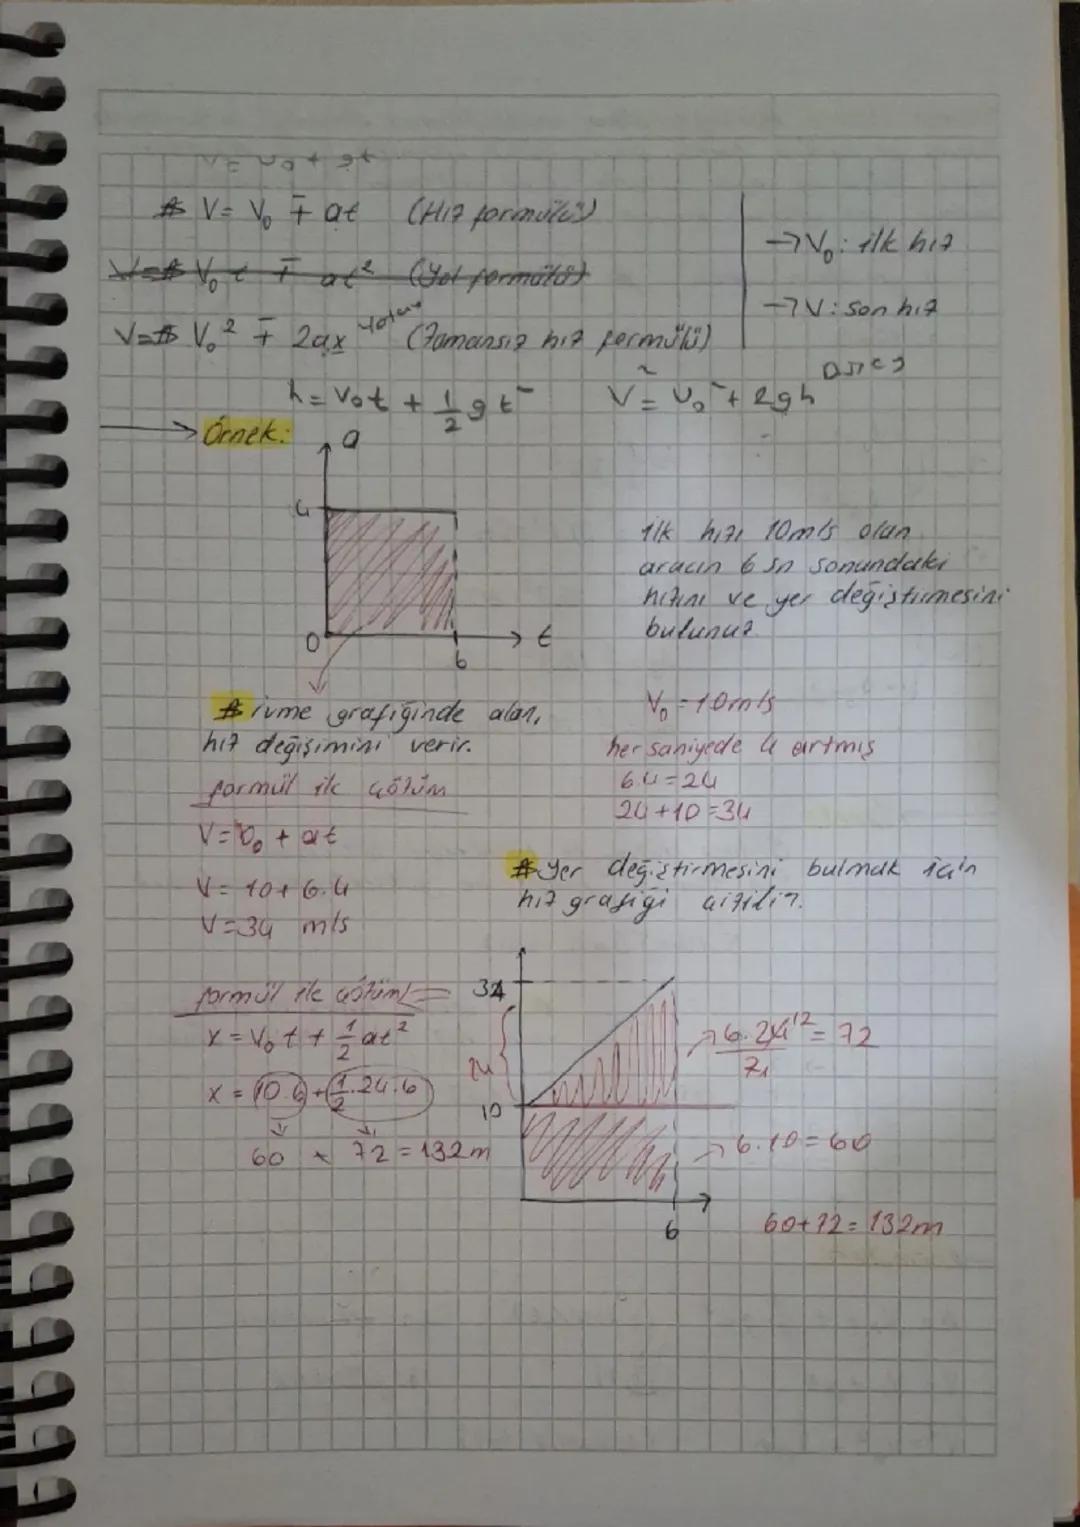 V = V₀ + gt
V = V₀ ∓ at (Hız formülü)
→ V₀ : ilk hız
V = V₀ t ∓ at² (Yol formülü)
→ V : son hız
V = V₀² ∓ 2ax (Zamansız hız formülü)
h = V₀t + 1/2 g t² V² = V₀² + 2gh
→ Örnek:
a
4
0
6
t
ilk hızı 10m/s olan
aracın 6 sn sonundaki
hızını ve yer değiştirmesini
bulunuz.
ivme grafiğinde alan,
hız değişimini verir.
V₀ = 10m/s
her saniyede 4 artmış
6.4=24
24+10=34
formül ile çözüm
V = V₀ + at
V = 10+6.4
V=34 m/s
Yer değiştirmesini bulmak için
hız grafiği çizilir.
formül ile çözüm
x = V₀ t + 1/2 at²
x = 10.6 + 1/2.24.6
60 + 72 = 132m
34
24
10
6
6.24 12 = 72
2 1
6.10 = 60
60+72=132m